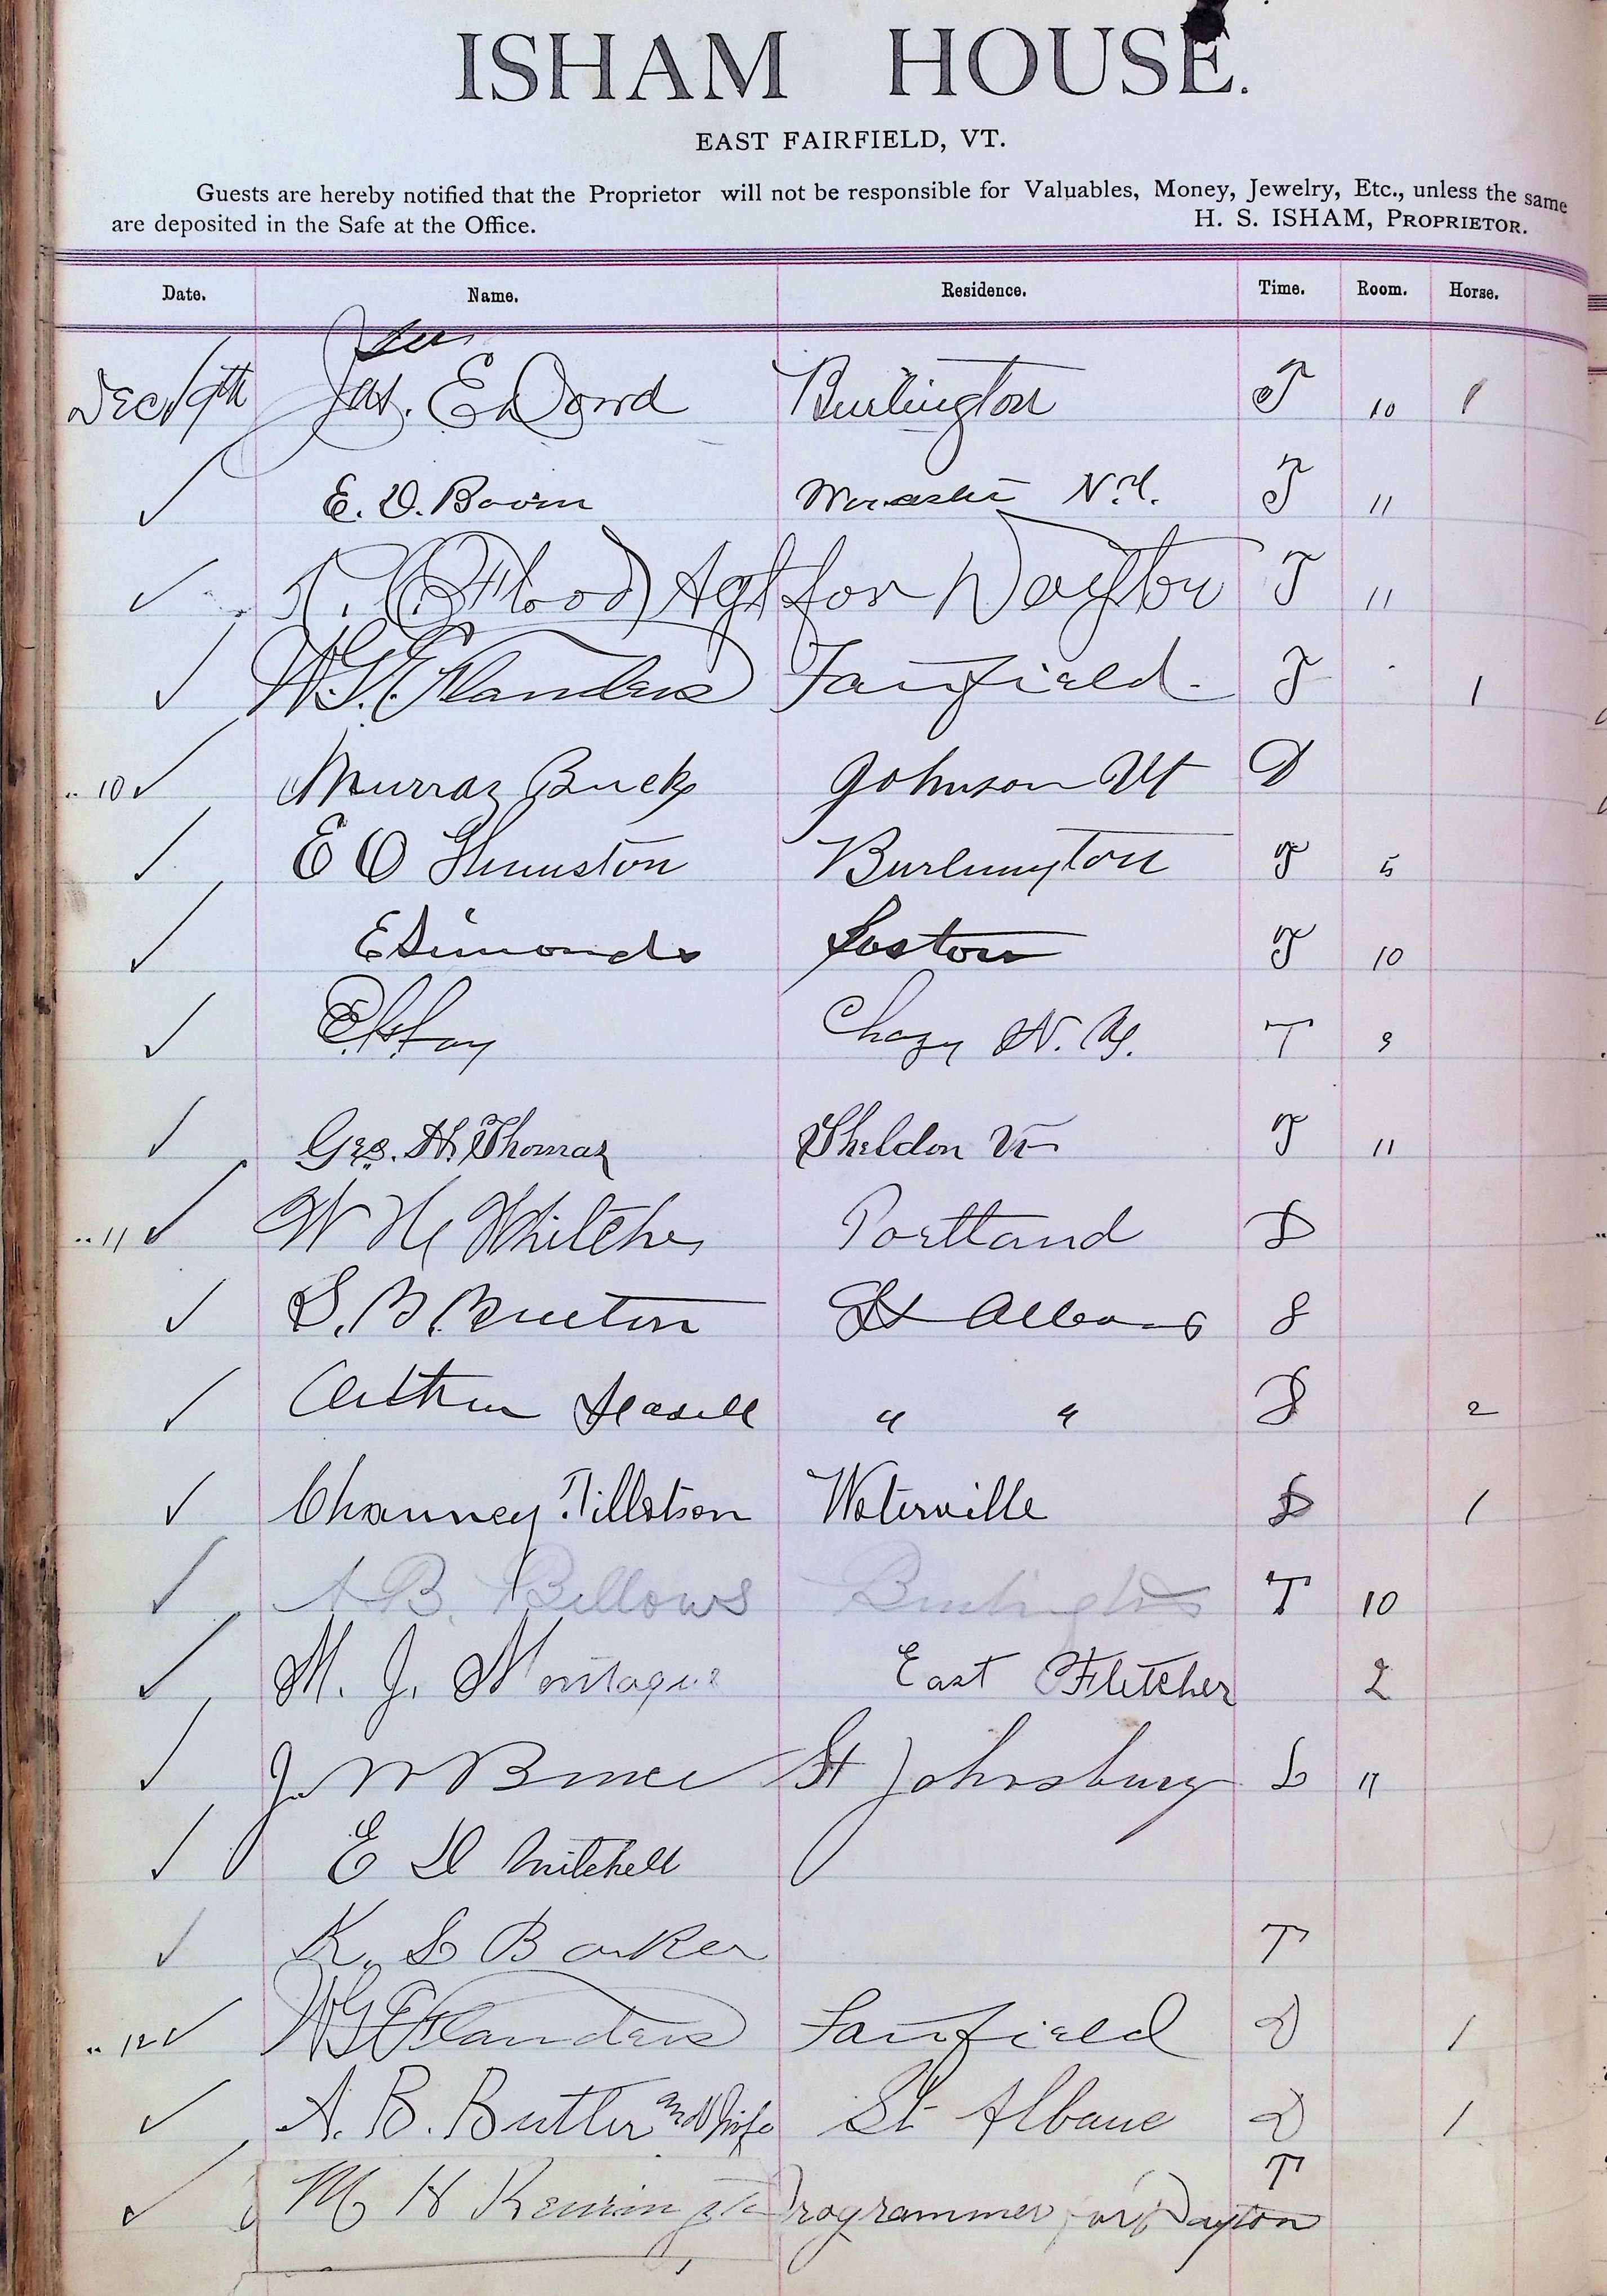 ISHAM HOUSE.
EAST FAIRFIELD, VT.
Guests are hereby notified that the Proprietor will not be responsible for Valuables, Money, Jewelry, Etc., unless the same
are deposited in the Safe at the Office. H. S. ISHAM, PROPRIETOR.
Date. Name. Residence. Time. Room. Horse.
Dec 9th Jas. E Dowd Burlington T 10 1
✓ E. D. N.Y. T 11
✓ Flood Agt for T 11
✓ W.G. Flanders Fairfield T 1
" 10 ✓ Murray Buck Johnson Vt D
✓ E O Humiston Burlington T 5
✓ E Simonds Boston T 10
✓ Fay Chazy N.Y. T 9
✓ Geo. H. Thomas Sheldon Vt T 11
" 11 ✓ W H Whitcher Portland D
✓ S. B. St Albans S
✓ Arthur " " D 2
✓ Chauncey Tillotson Waterville D 1
✓ A B. Bellows Burlington T 10
✓ M. J. Montague East Fletcher 2
✓ J W Bruce St Johnsbury L 11
✓ E D Mitchell
✓ K. S Barker T
" 12 ✓ W G Flanders Fairfield D 1
✓ A. B. Butler and Wife St Albans D 1
✓ M H Programmer for Dayton T